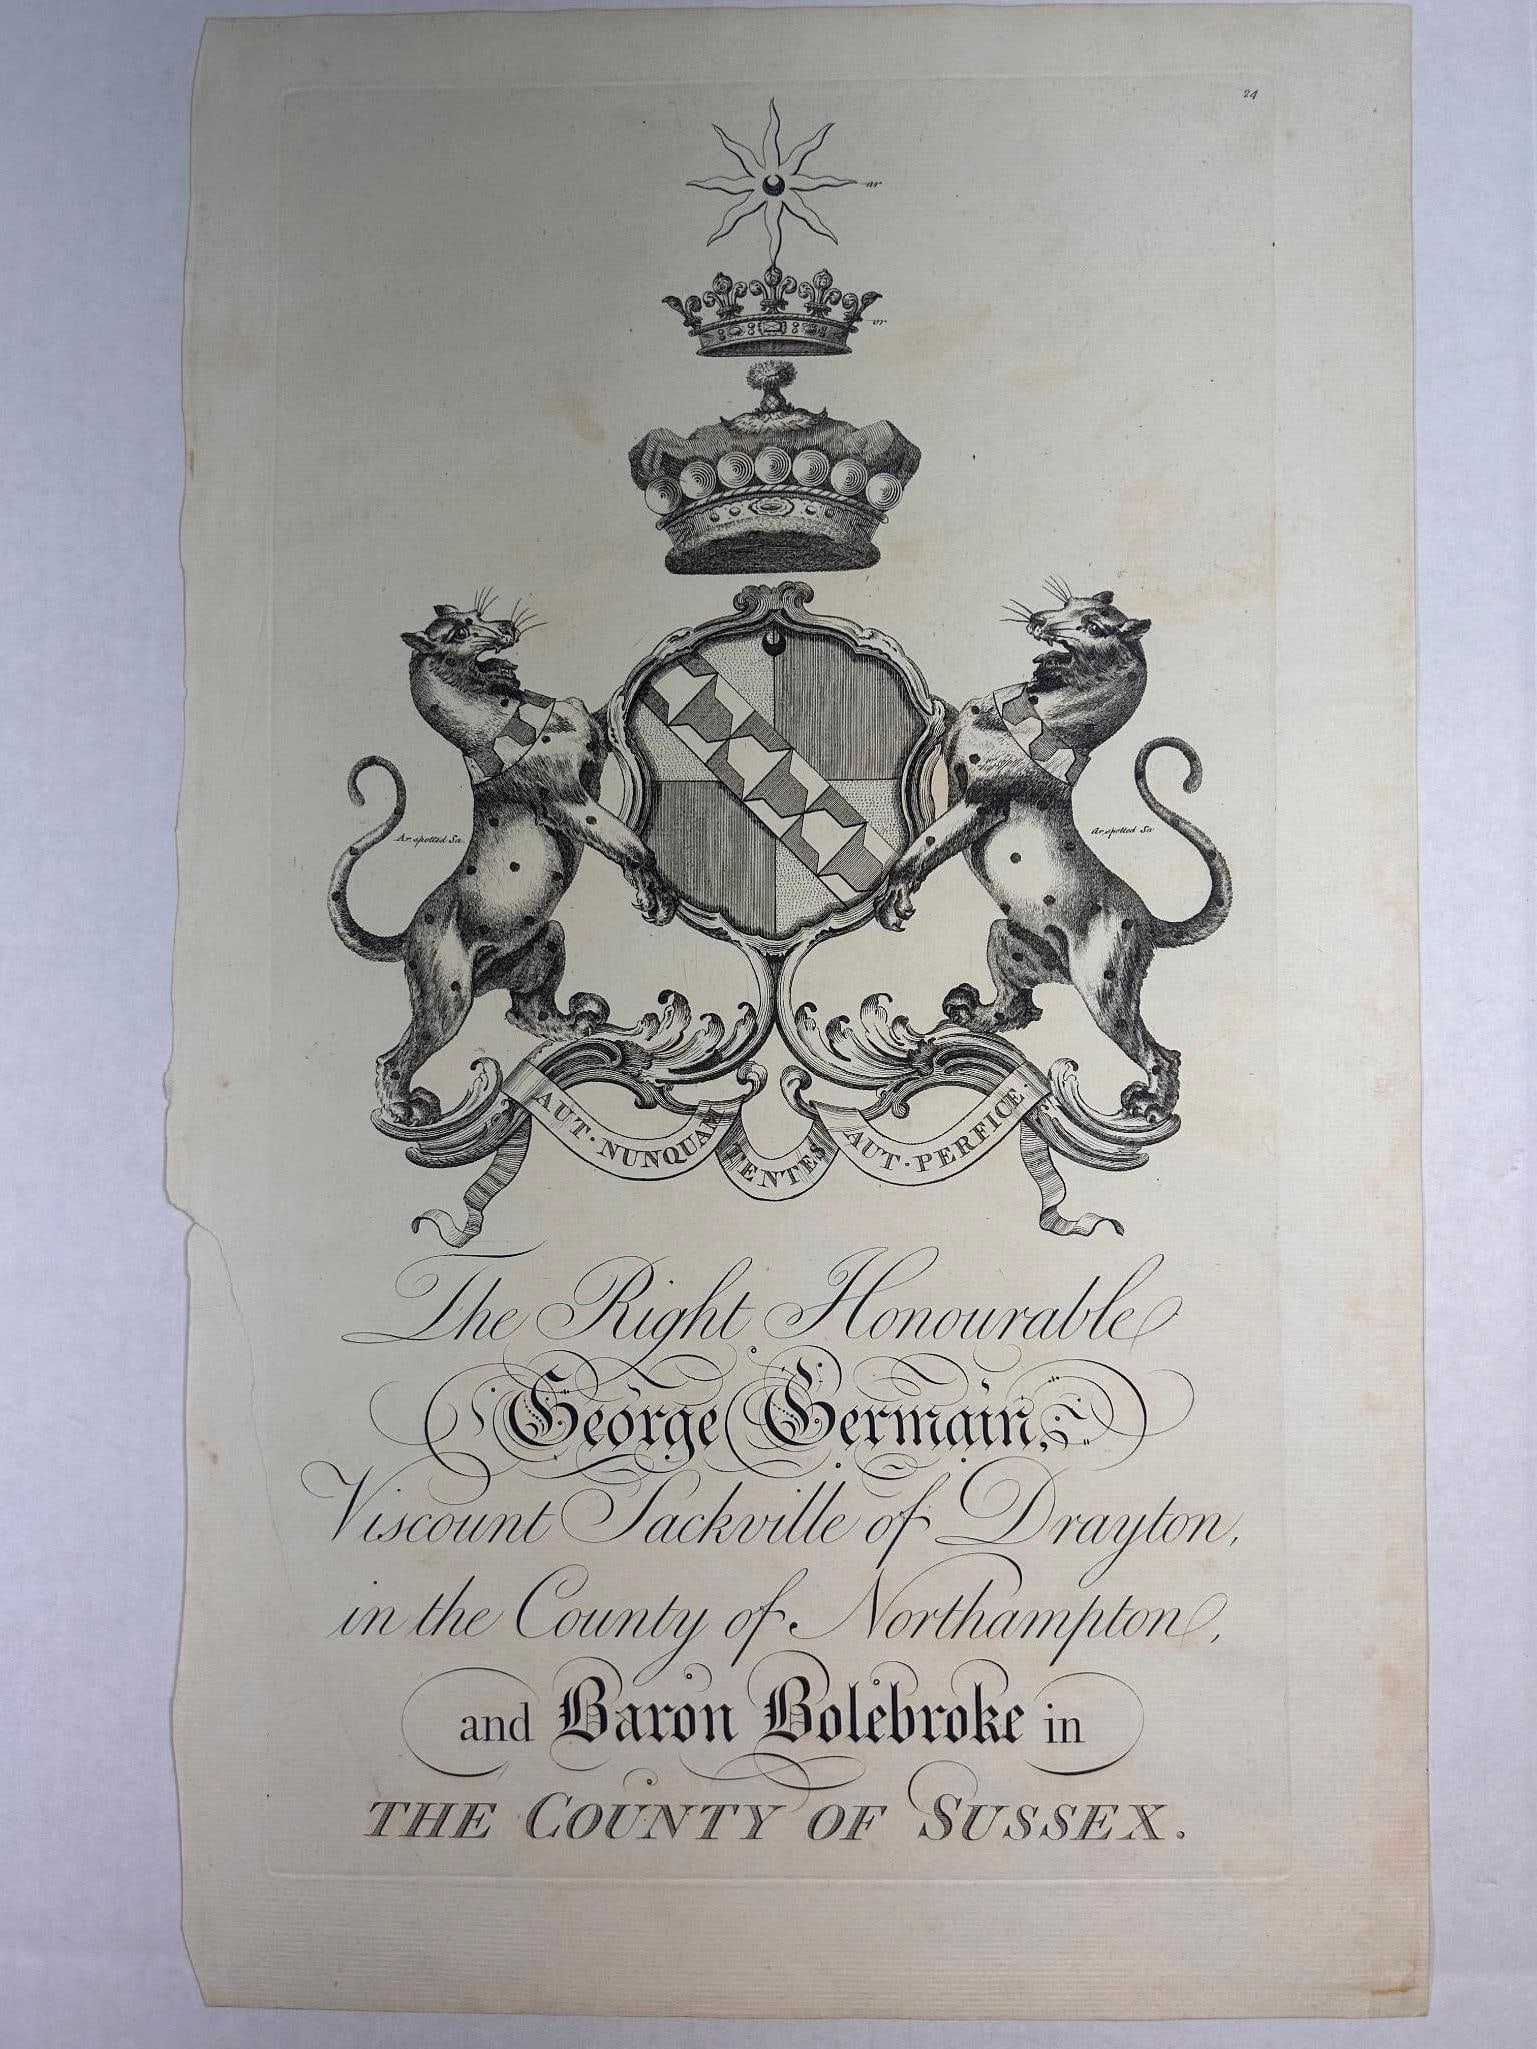 24
ar
or
Ar. spotted Sa.
Ar. spotted Sa
AUT · NUNQUAM TENTES AUT · PERFICE ·
The Right Honourable
George Germain,
Viscount Sackville of Drayton,
in the County of Northampton,
and Baron Bolebroke in
THE COUNTY OF SUSSEX.